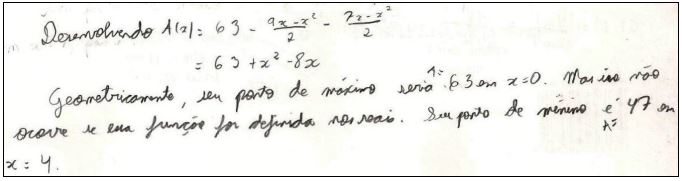 Desenvolvendo A(x) = 63 - \frac{9x - x^2}{2} - \frac{7x - x^2}{2}
= 63 + x^2 - 8x
Geometricamente, seu ponto de máximo seria A= 63 em x=0. Mas isso não
ocorre se essa função for definida nos reais. Seu ponto de mínimo é A= 47 em
x = 4.